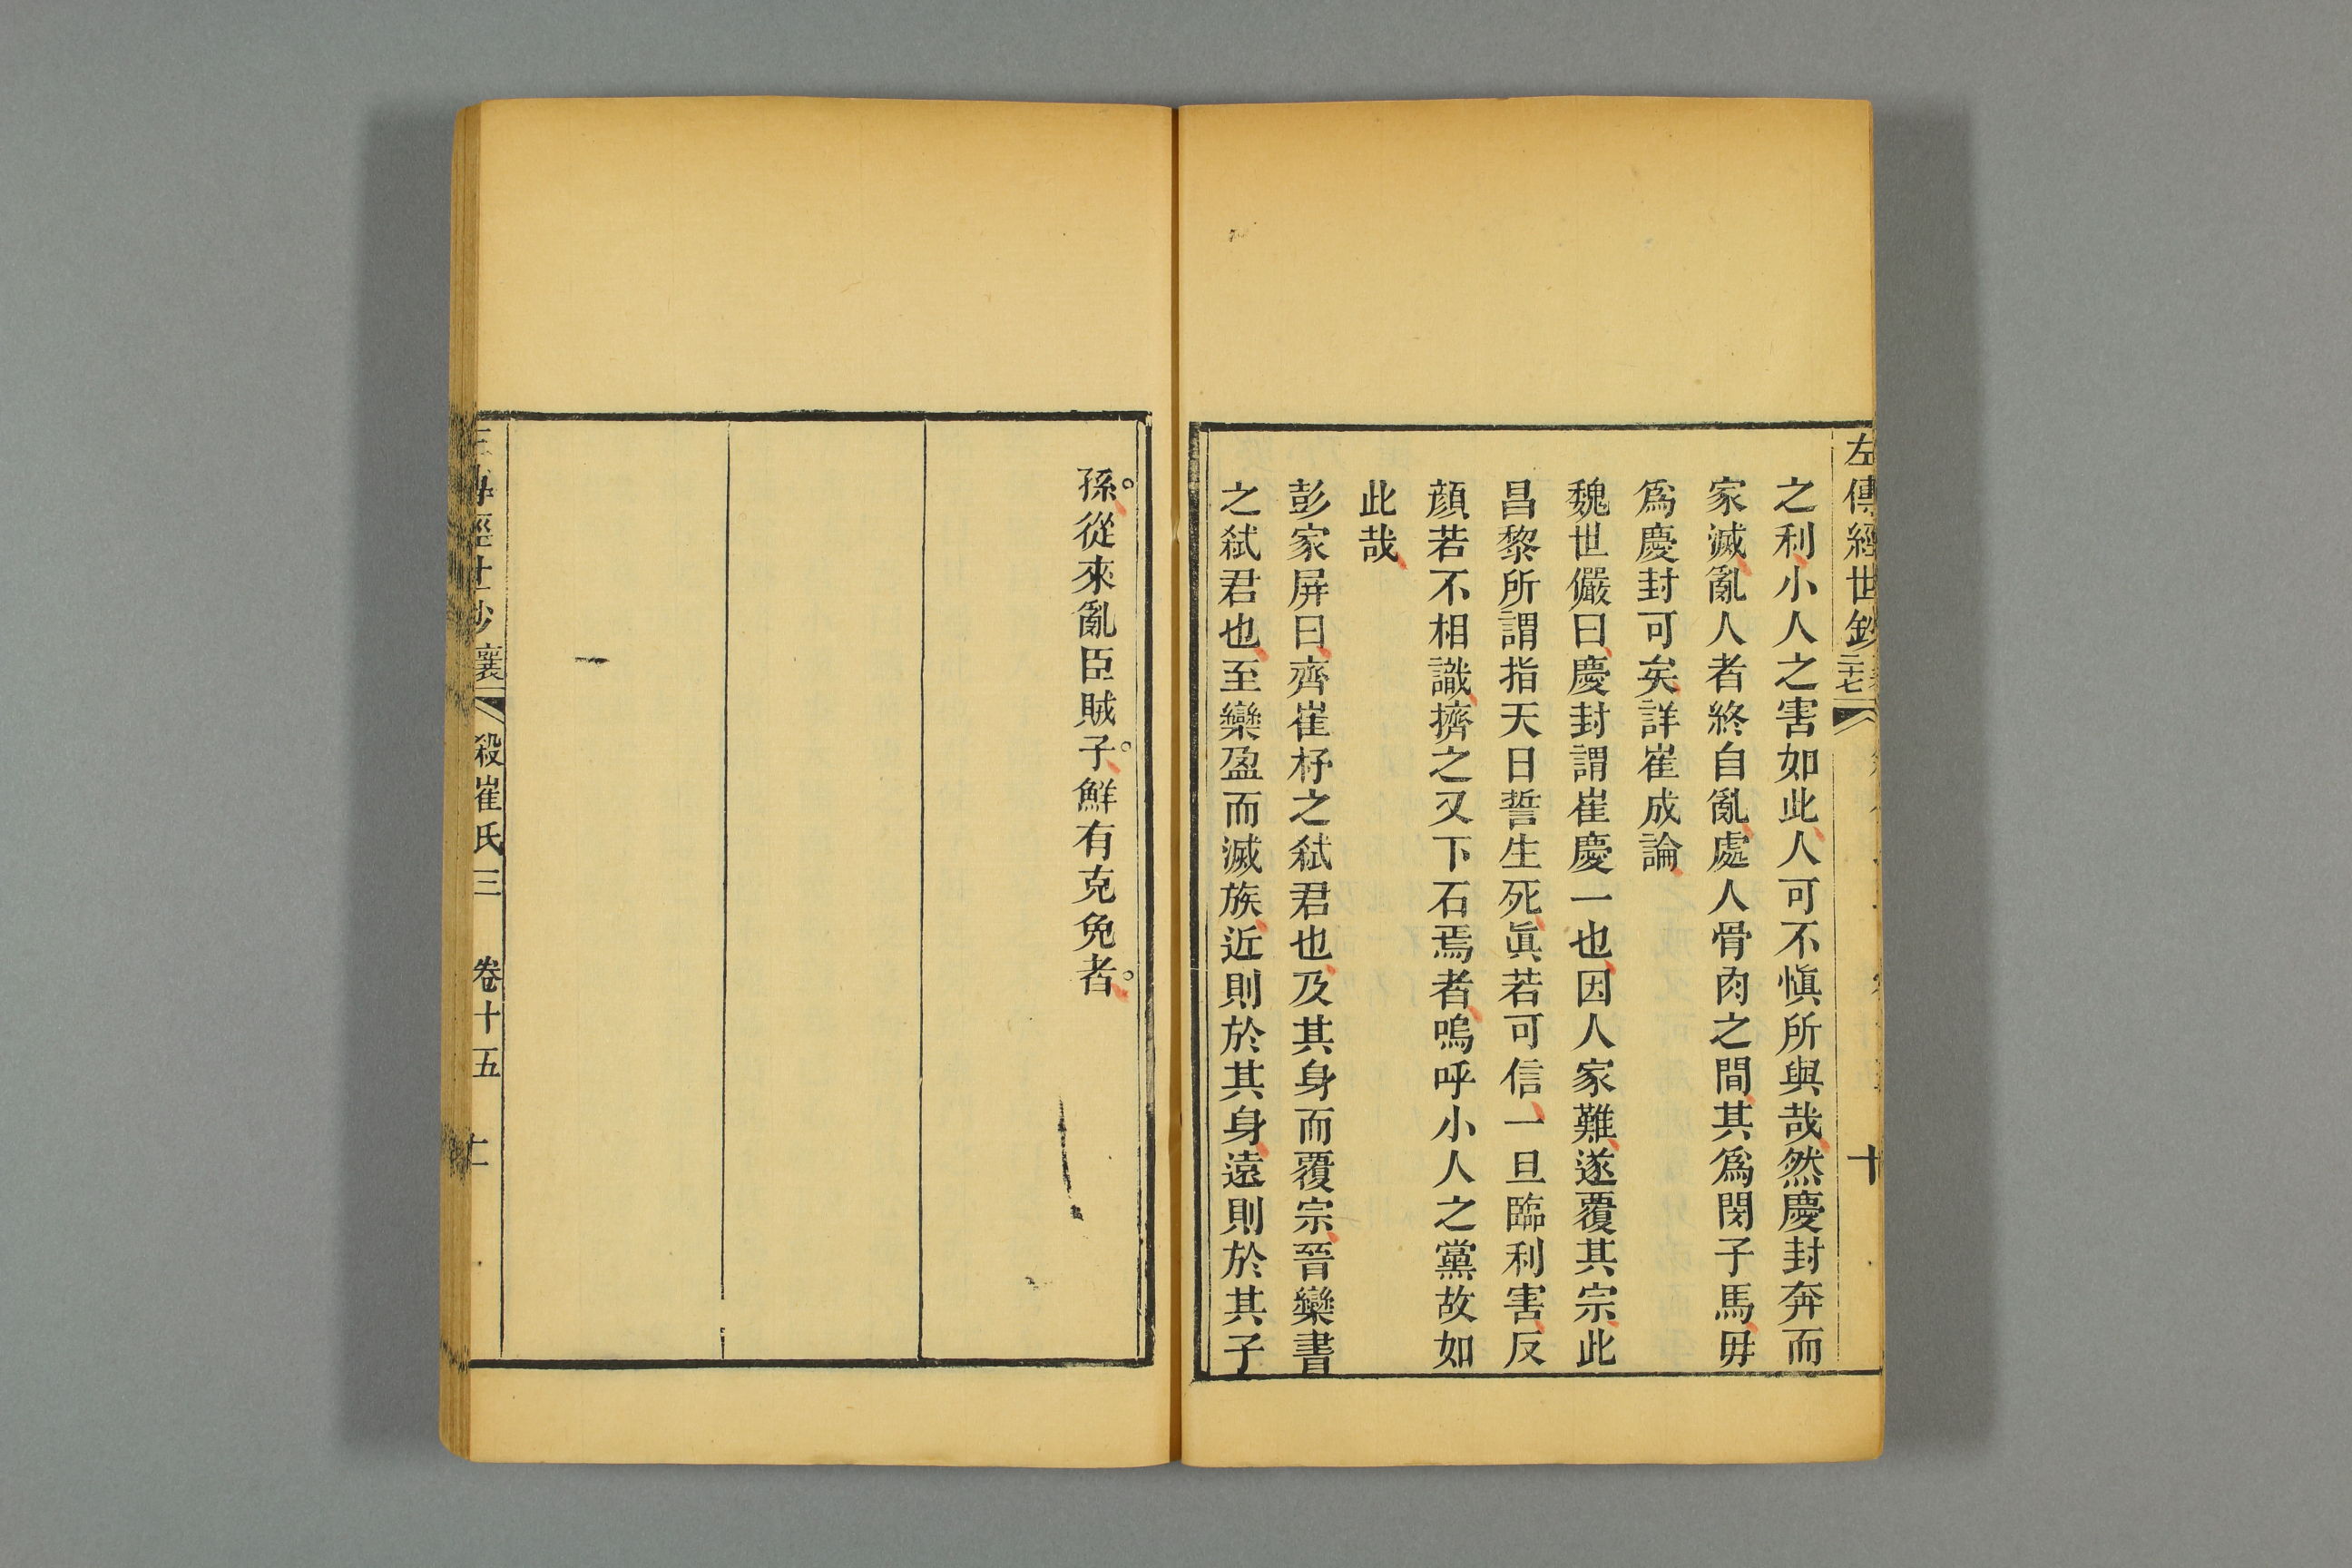 左傳經世鈔
之利小人之害如此人可不愼所與哉然慶封奔而
家滅亂人者終自亂處人骨肉之間其爲閔子馬毋
爲慶封可矣詳崔成論
魏世儼曰慶封謂崔慶一也因人家難遂覆其宗此
昌黎所謂指天日誓生死眞若可信一旦臨利害反
顔若不相識擠之又下石焉者嗚呼小人之黨故如
此哉
彭家屏曰齊崔杼之弒君也及其身而覆宗晉欒書
之弒君也至欒盈而滅族近則於其身遠則於其子
孫從來亂臣賊子鮮有克免者
襄 殺崔氏三 卷十五